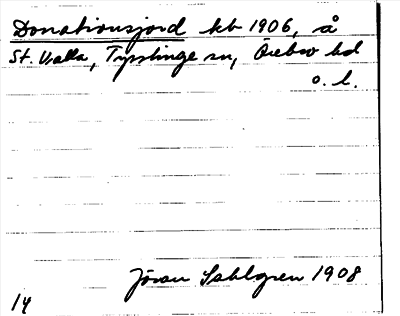 Donationsjord kb 1906, å
St. Valla, Tysslinge sn, Örebro hd
o. l.
Jöran Sahlgren 1908
14